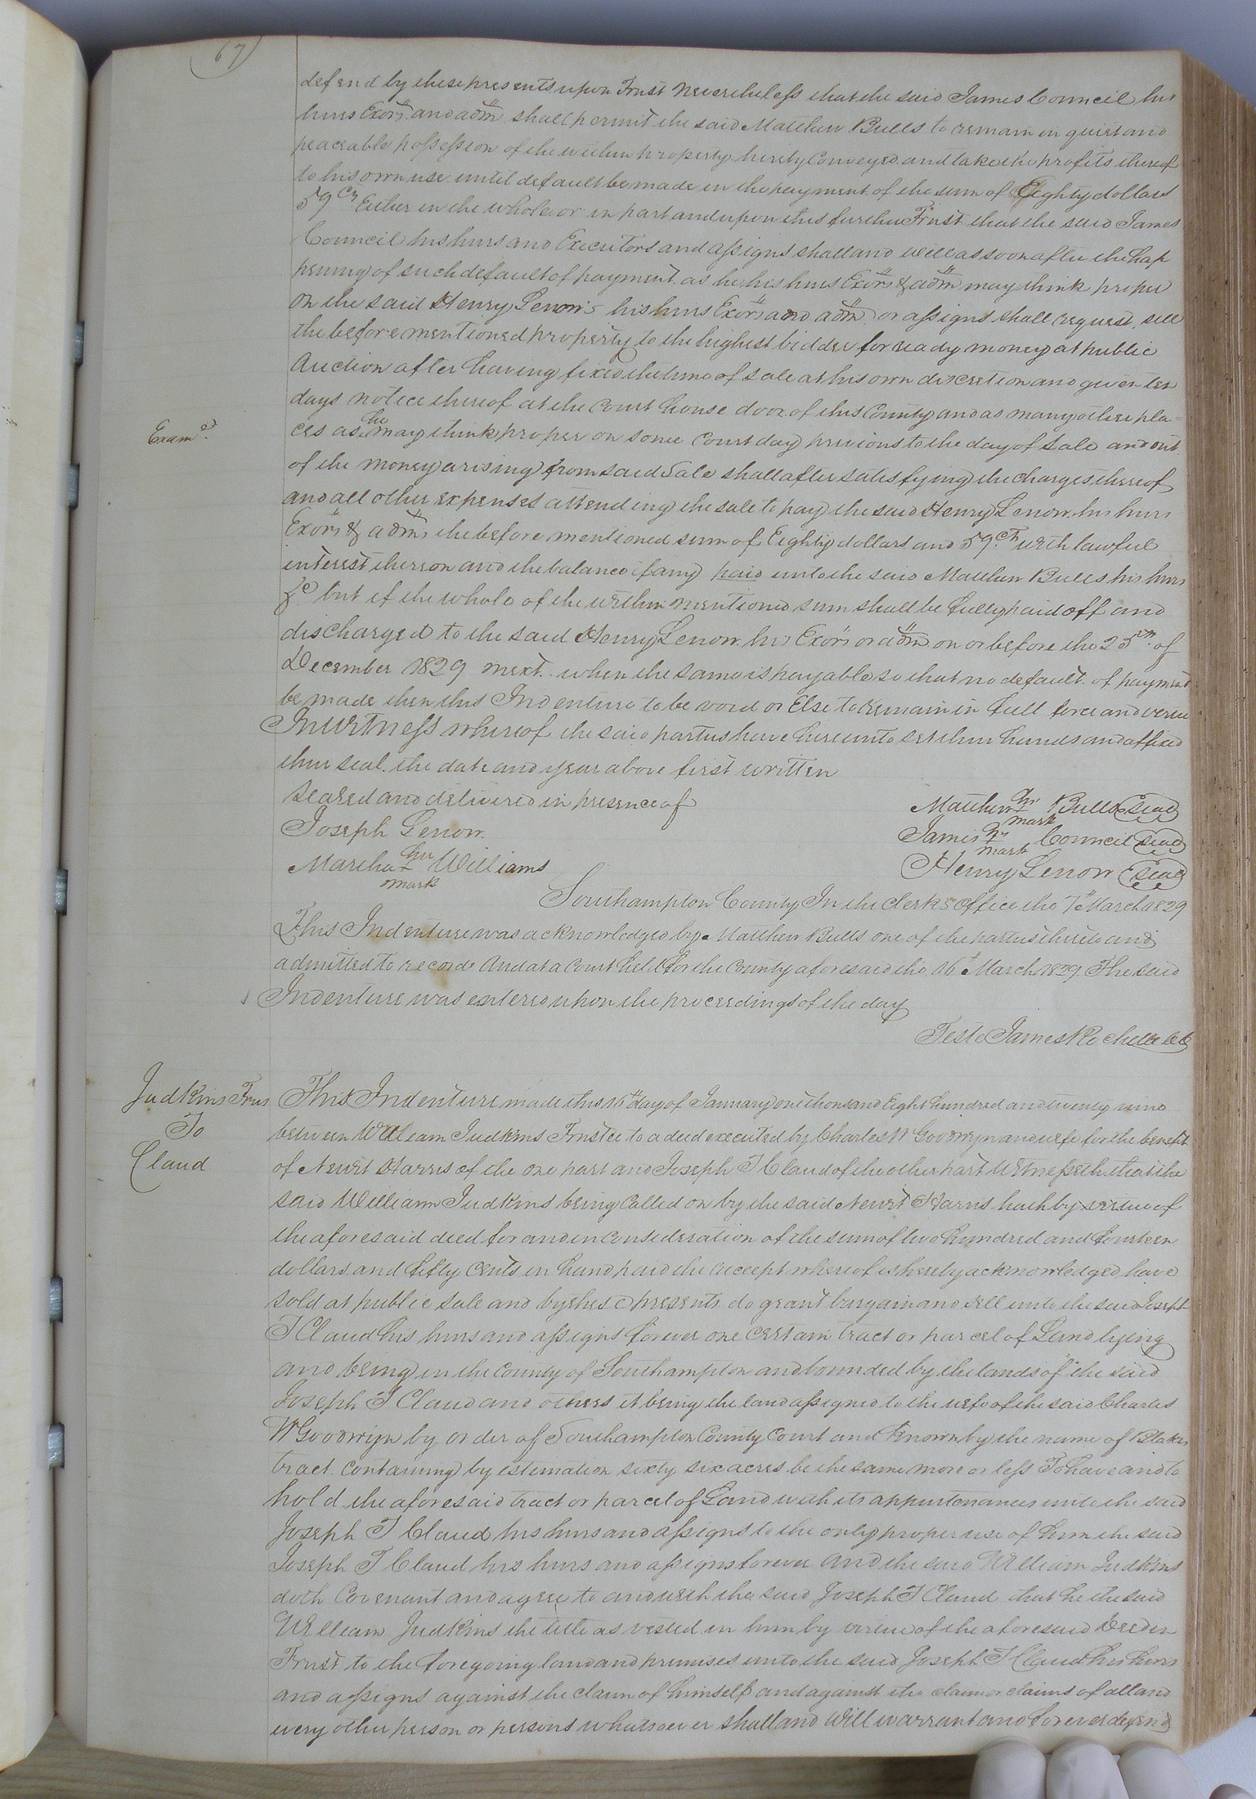 67
defend by these presents upon Trust nevertheless that the said James Council his
heirs Exors and adm shall permit the said Matthew Bulls to remain in quiet and
peaceable possession of the within property hereby Conveyed and take the profits thereof
to his own use until default be made in the payment of the sum of Eighty dollars
59 Cts Either in the whole or in part and upon this further Trust that the said James
Council his heirs and Executors and assigns shall and will as soon after the Hap
pening of such default of payment as he his heirs Exors & adm may think proper
or the said Henry Lenow his heirs Exors and adm or assigns shall request sell
the before mentioned property to the highest bidder for ready money at public
Auction after having fixed the time of sale at his own discretion and given ten
days notice thereof at the Court house door of this County and as many other pla-
ces as he may think proper on some Court day previous to the day of Sale and out
Examd
of the money arising from said Sale shall after satisfying the charges thereof
and all other expenses attending the sale to pay the said Henry Lenow his heirs
Exors & adms the before mentioned sum of Eighty dollars and 59 cts with lawful
interest thereon and the balance if any paid unto the said Matthew Bulls his heirs
&c but if the whole of the within mentioned sum shall be fully paid off and
discharged to the said Henry Lenow his Exors or adm on or before the 25th of
December 1829 next when the same is payable so that no default of payment
be made then this Indenture to be void or Else to remain in full force and virtue
In witness whereof the said parties have hereunto set their hands and affixed
their seal the date and year above first written
Sealed and delivered in presence of
Matthew his mark Bulls Seal
Joseph Lenow
James his mark Council Seal
Martha his mark Williams
Henry Lenow Seal
Southampton County In the Clerks Office the 7th March 1829
This Indenture was acknowledged by Matthew Bulls one of the parties thereto and
admitted to record And at a Court held for the County aforesaid the 16th March 1829 The said
Indenture was entered upon the proceedings of the day
Teste James Rochelle CC
Judkins Trus
To
Claud
This Indenture made this 16th day of January one thousand Eight hundred and twenty nine
between William Judkins Trustee to a deed executed by Charles W Goodwyn and wife for the benefit
of Newit Harris of the one part and Joseph T Claud of the other part Witnesseth that the
said William Judkins being called on by the said Newit Harris hath by virtue of
the aforesaid deed for and in consideration of the sum of two hundred and fourteen
dollars and fifty Cents in hand paid the receipt whereof is hereby acknowledged have
sold at public sale and by these presents do grant bargain and sell unto the said Joseph
T Claud his heirs and assigns forever one certain tract or parcel of Land lying
and being in the County of Southampton and bounded by the lands of the said
Joseph T Claud and others it being the land assigned to the wife of the said Charles
W Goodwyn by order of Southampton County Court and known by the name of Blakes
tract containing by estimation sixty six acres be the same more or less To have and to
hold the aforesaid tract or parcel of Land with its appurtenances unto the said
Joseph T Claud his heirs and assigns to the only proper use of him the said
Joseph T Claud his heirs and assigns forever And the said William Judkins
doth Covenant and agree to and with the said Joseph T Claud that he the said
William Judkins the title as vested in him by virtue of the aforesaid Deed in
Trust to the foregoing land and premises unto the said Joseph T Claud his heirs
and assigns against the claim of himself and against the claim or claims of all and
every other person or persons whatsoever shall and will warrant and forever defend